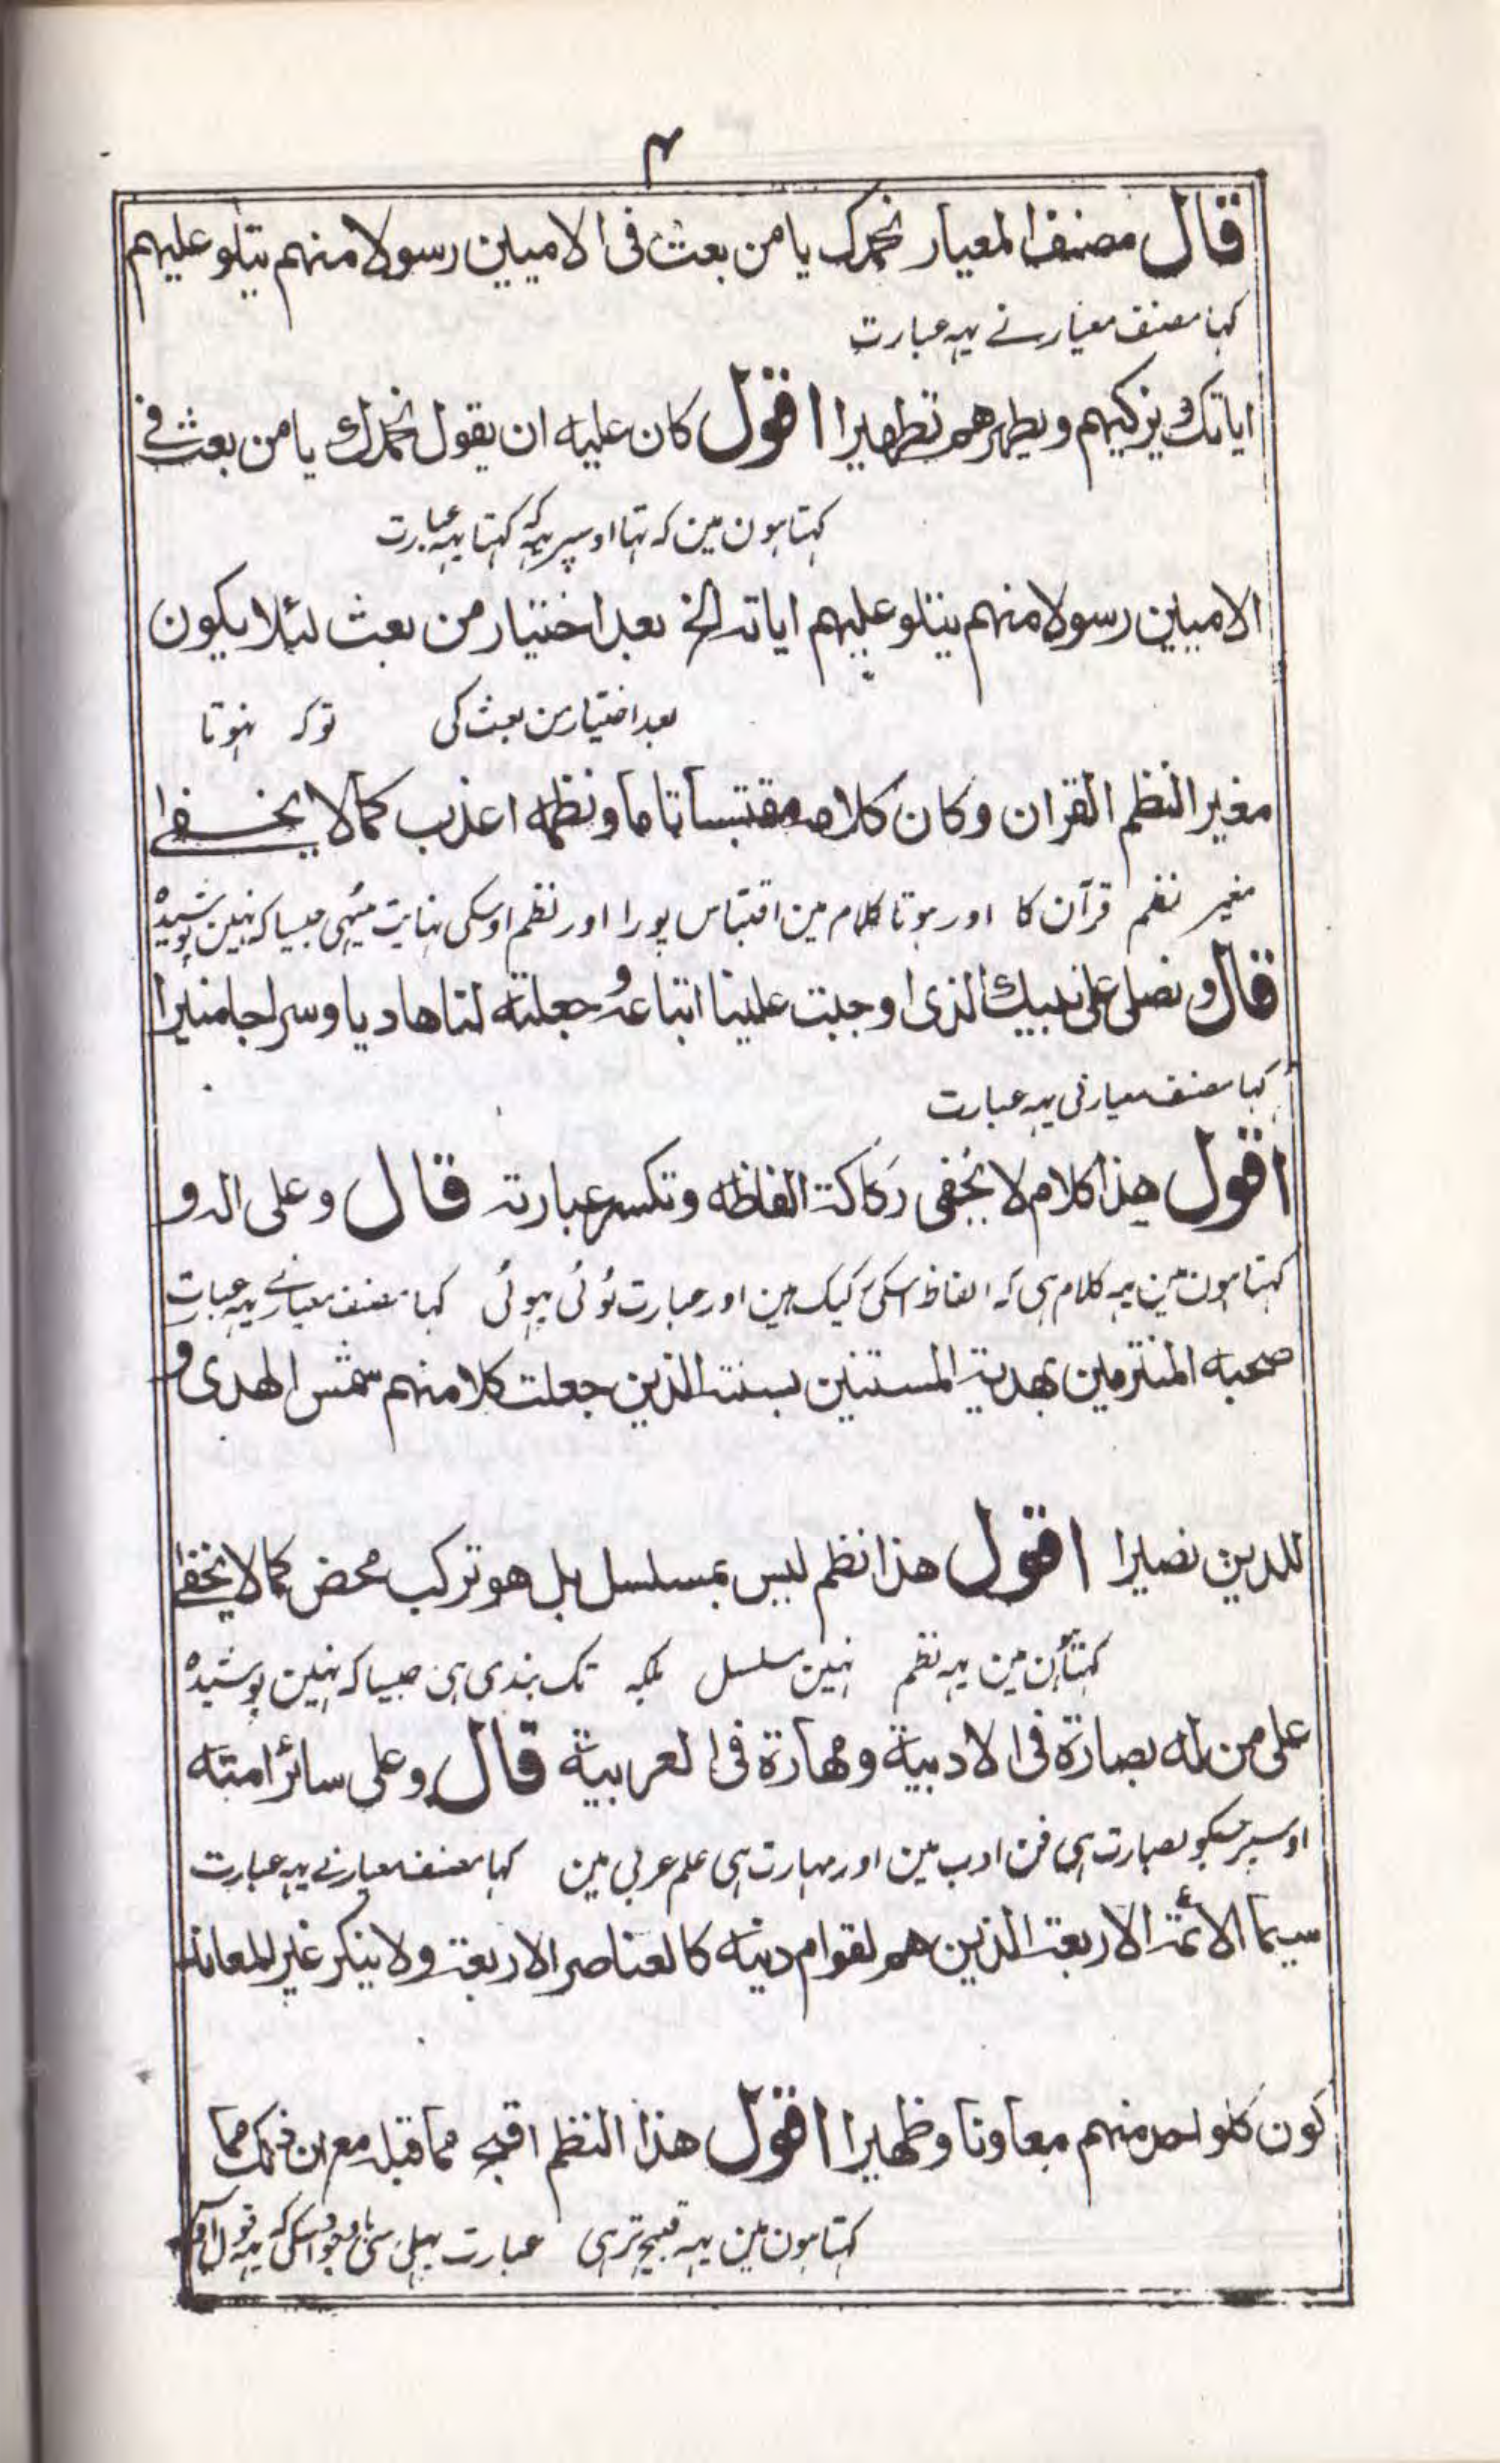 ۴
قال مصنف المعیار نحمدک یا من بعث فی الامیین رسولا منهم یتلو علیهم
کہا مصنف معیار نے یہہ عبارت
ایاتک ویزکیهم ویطهرهم تطهیرا اقول کان علیه ان یقول نحمدک یا من بعث فی
کہتا ہون مین کہ تہا اوسپر یہہ کہ کہتا یہہ عبارت
الامیین رسولا منهم یتلو علیهم ایاته الخ بعد اختیار من بعث لئلا یکون
بعد اختیار من بعث کی توکہ نہوتا
مغیر النظم القران وکان کلامه مقتبسا تاما ونظمه اعذب کما لا یخفی
مغیر نظم قرآن کا اور ہوتا کلام مین اقتباس پورا اور نظم اوسکی نہایت میٹہی جیسا کہ نہین پوشیدہ
قال ونصلی علی نبیک الذی اوجبت علینا اتباعه وجعلته لنا هادیا وسراجا منیرا
کہا مصنف معیار نی یہہ عبارت
اقول هذا کلام لا یخفی رکاکة الفاظه وتکسر عبارته قال وعلی اله و
کہتا ہون مین یہہ کلام ہی کہ الفاظ اسکی رکیک ہین اور عبارت ٹوٹی ہوئی کہا مصنف معیار نے یہہ عبارت
صحبه الملتزمین بهدیة المستنین بسنته الذین جعلت کلا منهم شمس الهدی و
للدین نصیرا اقول هذا نظم لیس بمسلسل بل هو ترکب محض کما لا یخفی
کہتا ہون مین یہہ نظم نہین مسلسل بلکہ تک بندی ہی جیسا کہ نہین پوشیدہ
علی من له بصارة فی الادبیة ومهارة فی العربیة قال وعلی سائر امته
اوسپر جسکو بصارت ہی فن ادب مین اور مہارت ہی علم عربی مین کہا مصنف معیار نے یہہ عبارت
سیما الائمة الاربعة الذین هم لقوام دینه کالعناصر الاربعة ولا ینکر غیر المعاند
کون کلواحد منهم معاونا وظهیرا اقول هذا النظم اقبح مما قبله مع ان ذلک مما
کہتا ہون مین یہہ قبیح تر ہی عبارت پہلی سی باوجود اسکی کہ یہہ قول